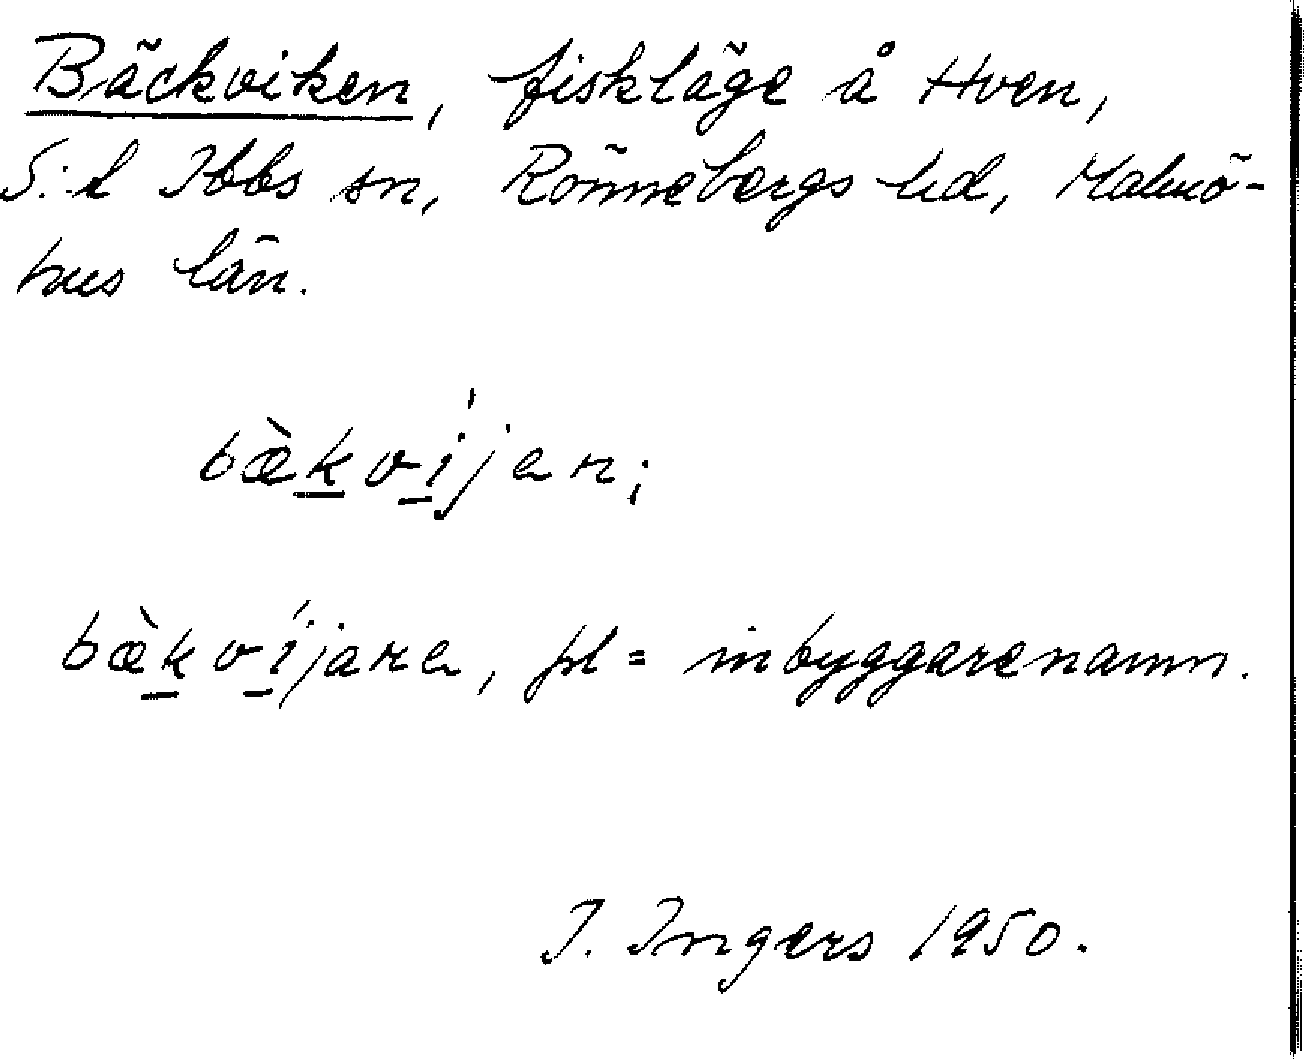 Bäckviken, fiskläge å Hven,
S:t Ibbs sn, Rönnebergs hd, Malmö-
hus län.
bæ̀kvíjan;
bæ̀kvíjara, pl = inbyggarenamn.
I. Ingers 1950.